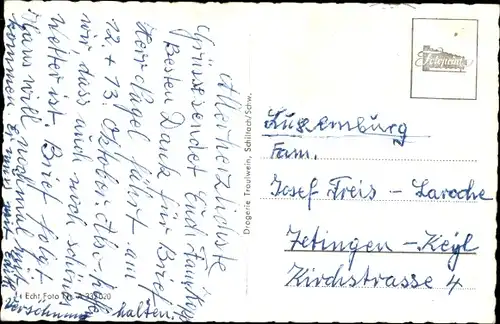 Allerherzlichste
Grüsse sendet Euch Fam.
Besten Dank für Brief.
Herr Pagel fährt am
12. + 13. Oktober also hoffe
wir, dass auch noch schön
Wetter ist. Brief folgt
Hans will nochmal mit
kommen. Er muss mit
halten.
Echt Foto
Drogerie Trautwein, Schiltach/Schw.
Fotoprint
Luxemburg
Fam.
Josef Freis - Laroche
Tetingen - Keyl
Kirchstrasse 4